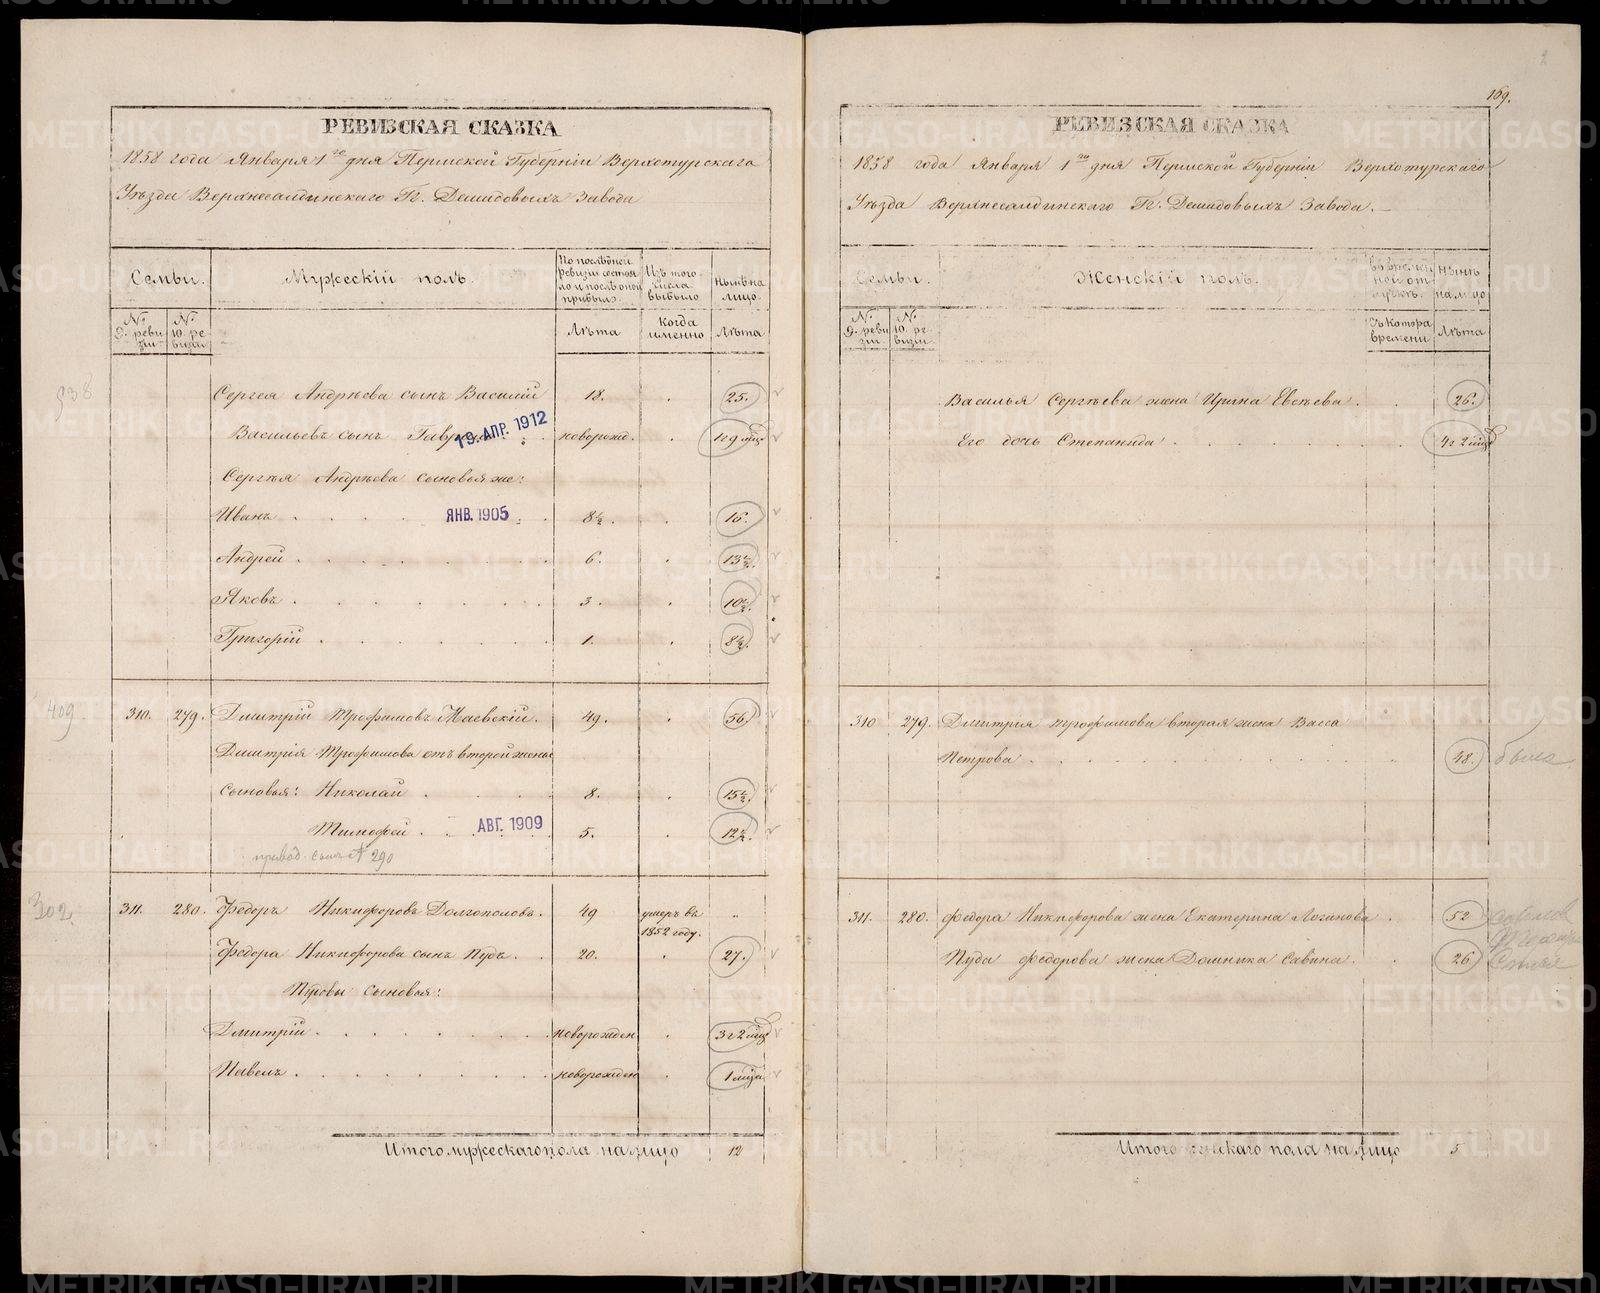 РЕВИЗСКАЯ СКАЗКА
1858 года Января 1го дня Пермской Губерніи Верхотурскаго
Уѣзда Верхнесалдинскаго Гг. Демидовыхъ Завода
Семьи.
Мужескій полъ.
По послѣдней ревизіи состояло и послѣ оной прибыло.
Изъ того числа выбыло
Нынѣ на лицо.
№ 9. ревизіи
№ 10. ревизіи
Лѣта
Когда именно
Лѣта
938
Сергея Андрѣева сынъ Василій 18. 25.
Васильевъ сынъ новорожд. 1 г 9 мцъ
19. АПР. 1912
Сергѣя Андрѣева сыновья же:
Иванъ 8½. 16.
ЯНВ. 1905
Андрей 6. 13½.
Яковъ 3. 10½.
Григорій 1. 8½.
409.
310. 279. Дмитрій Трофимовъ Маевскій. 49. 56.
Дмитрія Трофимова отъ второй жены
сыновья: Николай 8. 15½.
Тимофей 5. 12½.
АВГ. 1909
290
302.
311. 280. Федоръ Никифоровъ Долгополовъ. 49 умеръ въ 1852 году.
Федора Никифорова сынъ Пудъ. 20. 27.
Пудовы сыновья:
Дмитрій новорожден 3 г 2 мцъ
Павелъ новорожден 1 мцъ
Итого мужескаго пола на лицо 12
169.
РЕВИЗСКАЯ СКАЗКА
1858 года Января 1го дня Пермской Губерніи Верхотурскаго
Уѣзда Верхнесалдинскаго Гг. Демидовыхъ Завода.
Семьи.
Женскій полъ.
Во временной отлучкѣ.
Нынѣ на лицо
№ 9. ревизіи.
№ 10. ревизіи.
Съ котора времени
Лѣта
Василья Сергѣева жена Ирина Евсѣева. 26.
Его дочь Степанида 4 г 2 мцъ
310 279. Дмитрія Трофимова вторая жена Васса
Петрова 48.
311. 280. Федора Никифорова жена Екатерина Логинова 52
Пуда Федорова жена Домника Савина. 26
Итого женскаго пола на лицо 5
METRIKI.GASO-URAL.RU